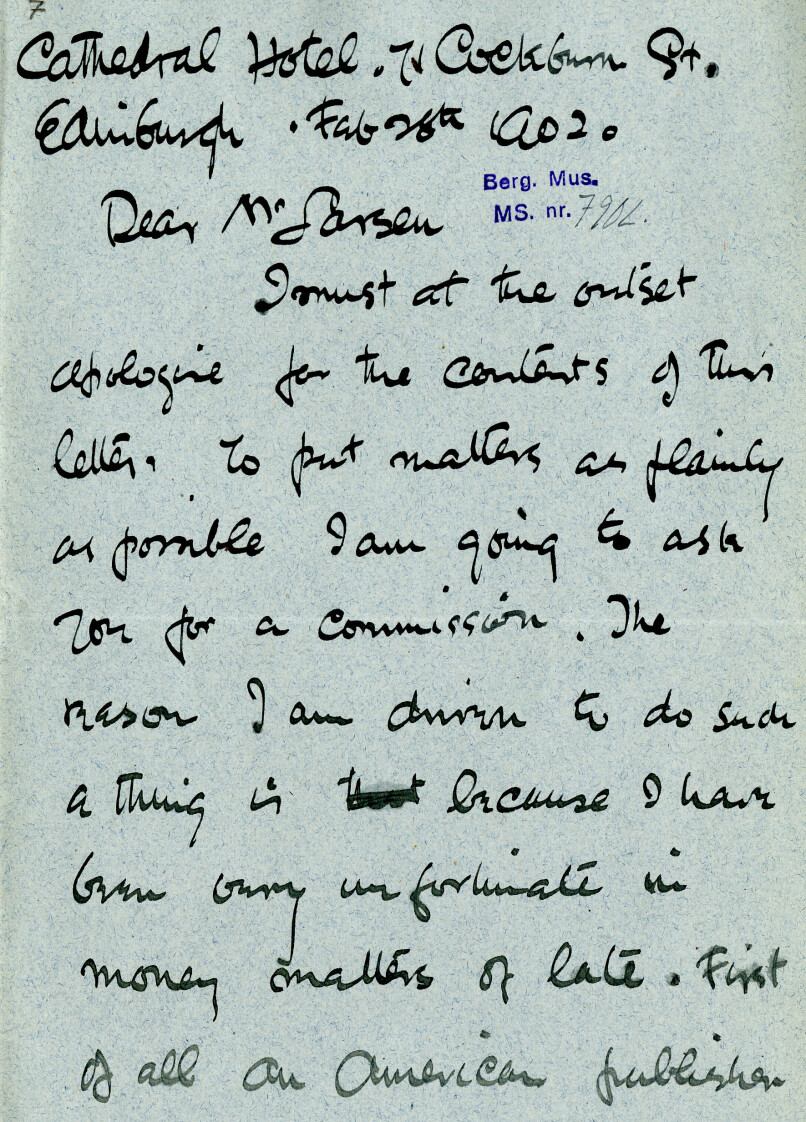 7
Cathedral Hotel. Cockburn St.
Edinburgh. Feb 28th 1902.
Berg. Mus.
MS. nr. 7902.
Dear Mr Larsen
I must at the outset
apologise for the contents of this
letter. To put matters as plainly
as possible I am going to ask
you for a commission. The
reason I am driven to do such
a thing is that because I have
been very unfortunate in
money matters of late. First
of all an American publisher